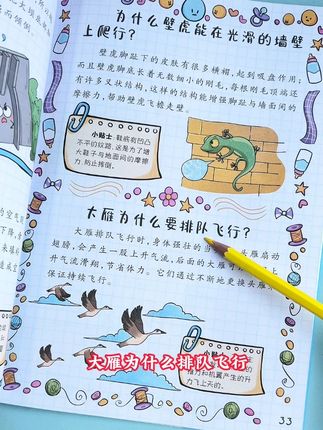 为什么壁虎能在光滑的墙壁
上爬行?
壁虎脚趾下的皮肤有很多横褶,起到吸盘作用;
而且壁虎脚底长着无数细小的刚毛,每根刚毛顶端还
有许多叉状结构,这样的结构能增强脚趾与墙面间的
摩擦力,帮助壁虎飞檐走壁。
小贴士:鞋底有凹凸
不平的纹路,这是为了增
大鞋子与地面间的摩擦
力,防止摔倒。
大雁为什么要排队飞行?
大雁排队飞行时,身体强壮的当
头雁扇动
翅膀,会产生一股上升气流,后面的大雁可
升气流滑翔,节省体力。它们通过不断地更换头雁
保证持续飞行。
大雁为什么排队飞行
推力和机翼产生的升
力飞上天的。
33